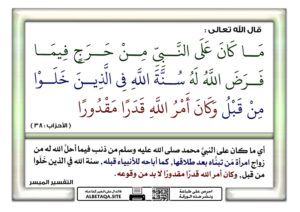 قال الله تعالى :
مَا كَانَ عَلَى النَّبِيِّ مِنْ حَرَجٍ فِيمَا
فَرَضَ اللَّهُ لَهُ سُنَّةَ اللَّهِ فِي الَّذِينَ خَلَوْا
مِنْ قَبْلُ وَكَانَ أَمْرُ اللَّهِ قَدَرًا مَقْدُورًا
( الأحزاب : ٣٨ )
أي ما كان على النبيِّ محمد صلى الله عليه وسلم من ذنب فيما أحلَّ الله له من
زواج امرأة مَن تبنَّاه بعد طلاقها, كما أباحه للأنبياء قبله, سنة الله في الذين خَلَوا
من قبل, وكان أمر الله قدرًا مقدورًا لا بد من وقوعه.
التفسير الميسر
احرص على طباعة
ونشر هذه البطاقة
ALBETAQA.SITE